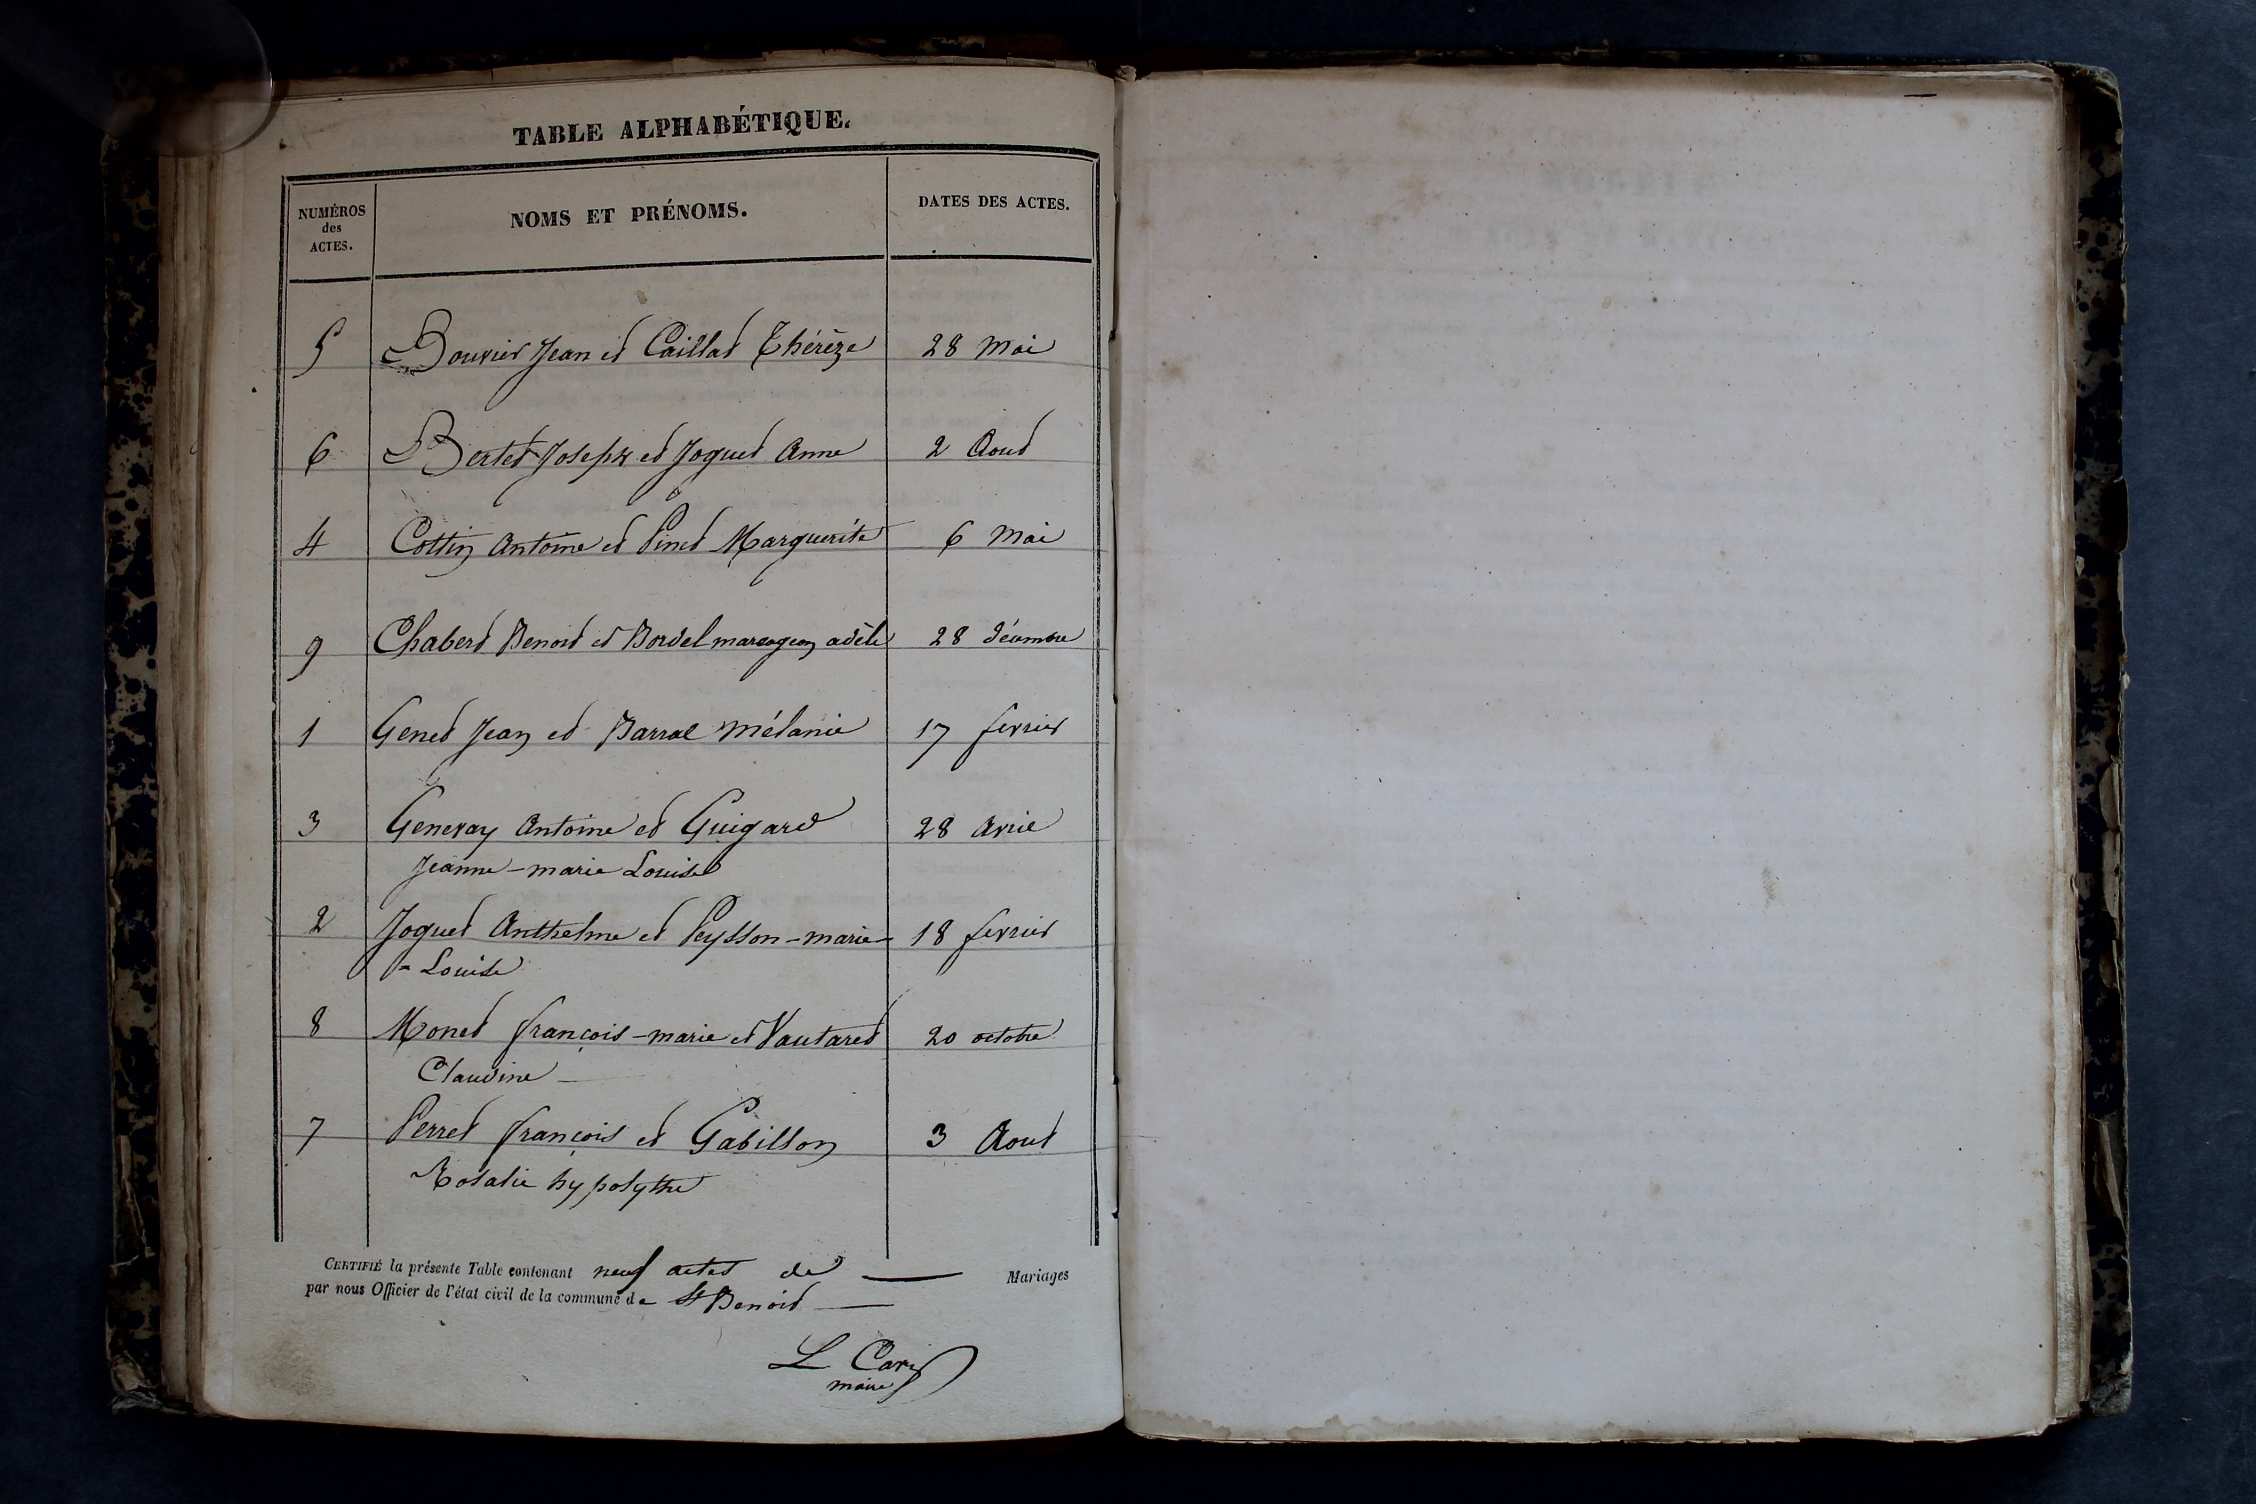 TABLE ALPHABÉTIQUE.
NUMÉROS des ACTES.
NOMS ET PRÉNOMS.
DATES DES ACTES.
5 Bouvier Jean et Caillat Thérèze 28 Mai
6 Bertet Joseph et Joguet Anne 2 Aout
4 Cottin Antoine et Pinet Marguerite 6 Mai
9 Chabert Benoit et Bordel marcogeon adèle 28 décembre
1 Genet Jean et Barral Mélanie 17 fevrier
3 Genevay Antoine et Guigard 28 Avril
Jeanne-marie Louise
2 Joguet Anthelme et Peysson-marie- 18 fevrier
- Louise
8 Monet françois-marie et Vautaret 20 octobre
Claudine
7 Perret françois et Gabillon 3 Aout
Rosalie hypolythe
CERTIFIÉ la présente Table contenant neuf actes de Mariages
par nous Officier de l'état civil de la commune de St Benoit
L
maire